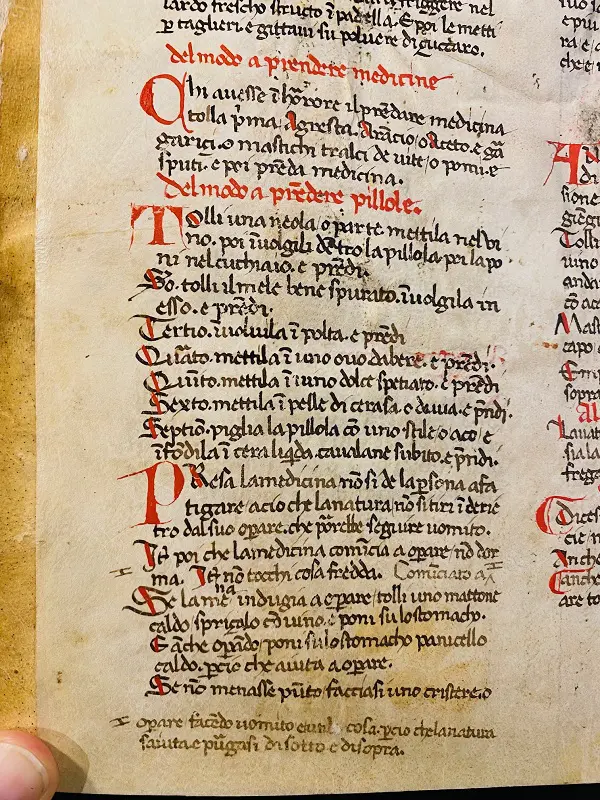 lardo frescho structo ī padella. E poi le metti
p taglieri. e gittavi su polvere di çuccaro.
del modo a prendere medicine
Chi avesse ī horrore il prēdare medicina
tolla pīma. Agresta. Arācio, o Aceto. e gā
garici. o mastichi tralci de uite, o pomi. e
sputi. e poi prēda medicina.
del modo a prēdere pillole.
Tolli una neola, o parte. mettila nel vi
no. poi īvolgili dētro la pillola. poi la po
ni nel cuchiaio. e prēdi.
So. tolli il mele bene spurato. īvolgila in
esso. e prēdi.
Tertio. īvolvila ī polta. e prēdi
Quarto. mettila ī uno ovo dabere. e prēdi.
Quīto. mettila ī uno dolce spetiato. e prēdi
Sexto. mettila ī pelle di cerasa. o duuia. e prīdi.
Septiō. piglia la pillola cō uno stile, o aco, e
īfōdila ī cera liqda. cavalane subito. e prīdi.
Presa la medicina. nō si de la psona afa
tigare. acio che la natura nō si tiri ī derie
tro dal suo opare. che porrebbe seguire uomito.
Itē poi che la medicina comīcia a opare. nō dor
ma. Itē nō tocchi cosa fredda. Comīciato a
Se la me na īndugia a opare. tolli uno mattone
caldo spriçalo cō vino. e poni su lo stomacho.
E āche opādo. poni su lo stomacho panicello
caldo. pcio che aiuta a opare.
Se nō menasse pūto. facciasi uno cristere. o
opare facēdo uomito cosa. pcio che la natura
s aiuta e pūgasi di sotto e di sopra.
di
sione
Tolli
uino
cō ac
Mast
capo
Emp
sopra
Al
Lavat
sia la
frega
Dices
cie. n
Anche
anche
are to